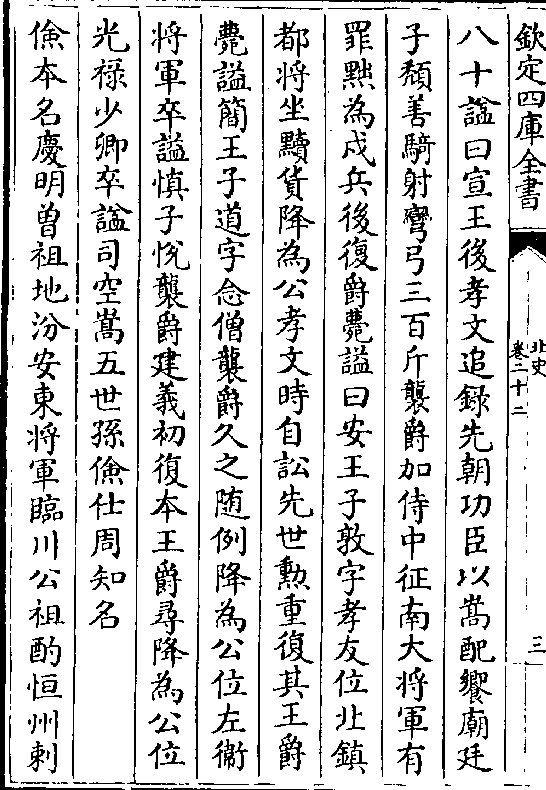 欽定四庫全書
北史
卷二十二
三
八十諡曰宣王後孝文追録先朝功臣以嵩配饗廟廷
子頽善騎射彎弓三百斤襲爵加侍中征南大將軍有
罪黜為戍兵後復爵薨諡曰安王子敦字孝友位北鎮
都將坐黷貨降為公孝文時自訟先世勲重復其王爵
薨諡簡王子道字念僧襲爵久之随例降為公位左衞
將軍卒諡慎子恱襲爵建義初復本王爵尋降為公位
光禄少卿卒諡司空嵩五世孫儉仕周知名
儉本名慶明曽祖地汾安東將軍臨川公祖酌恒州刺